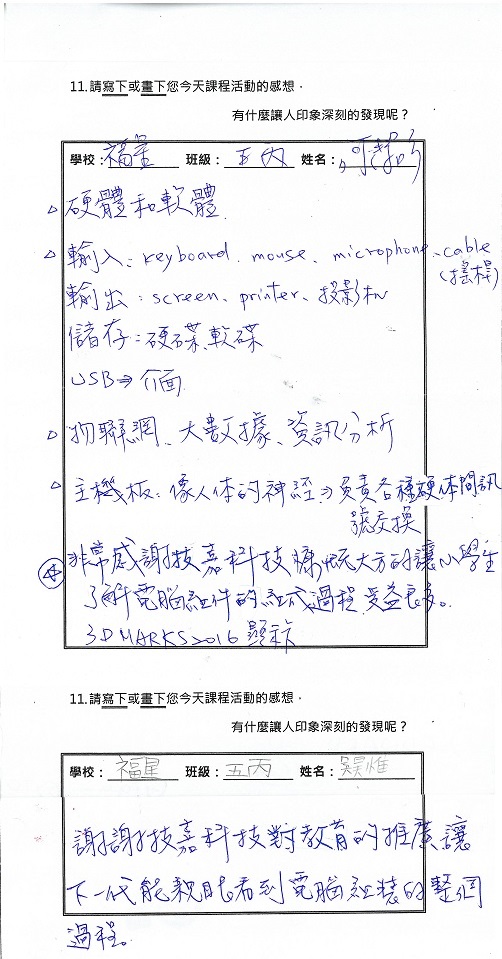 11.請寫下或畫下您今天課程活動的感想。
有什麼讓人印象深刻的發現呢？
學校：福星 班級：五丙 姓名：
△ 硬體和軟體
△ 輸入：keyboard、mouse、microphone、cable
(搖桿)
輸出：screen、printer、投影机
儲存：硬碟、軟碟
USB⇒介面
△ 物聯網、大數據、資訊分析
△ 主機板：像人体的神經⇒負責各種硬体間訊
號交換
非常感謝技嘉科技慷慨大方的讓小學生
了解電腦組件的組成過程,受益良多。
3D MARKS 2016 顯示
11.請寫下或畫下您今天課程活動的感想。
有什麼讓人印象深刻的發現呢？
學校：福星 班級：五丙 姓名：吳
謝謝技嘉科技對教育的推廣,讓
下一代能親眼看到電腦組裝的整個
過程。